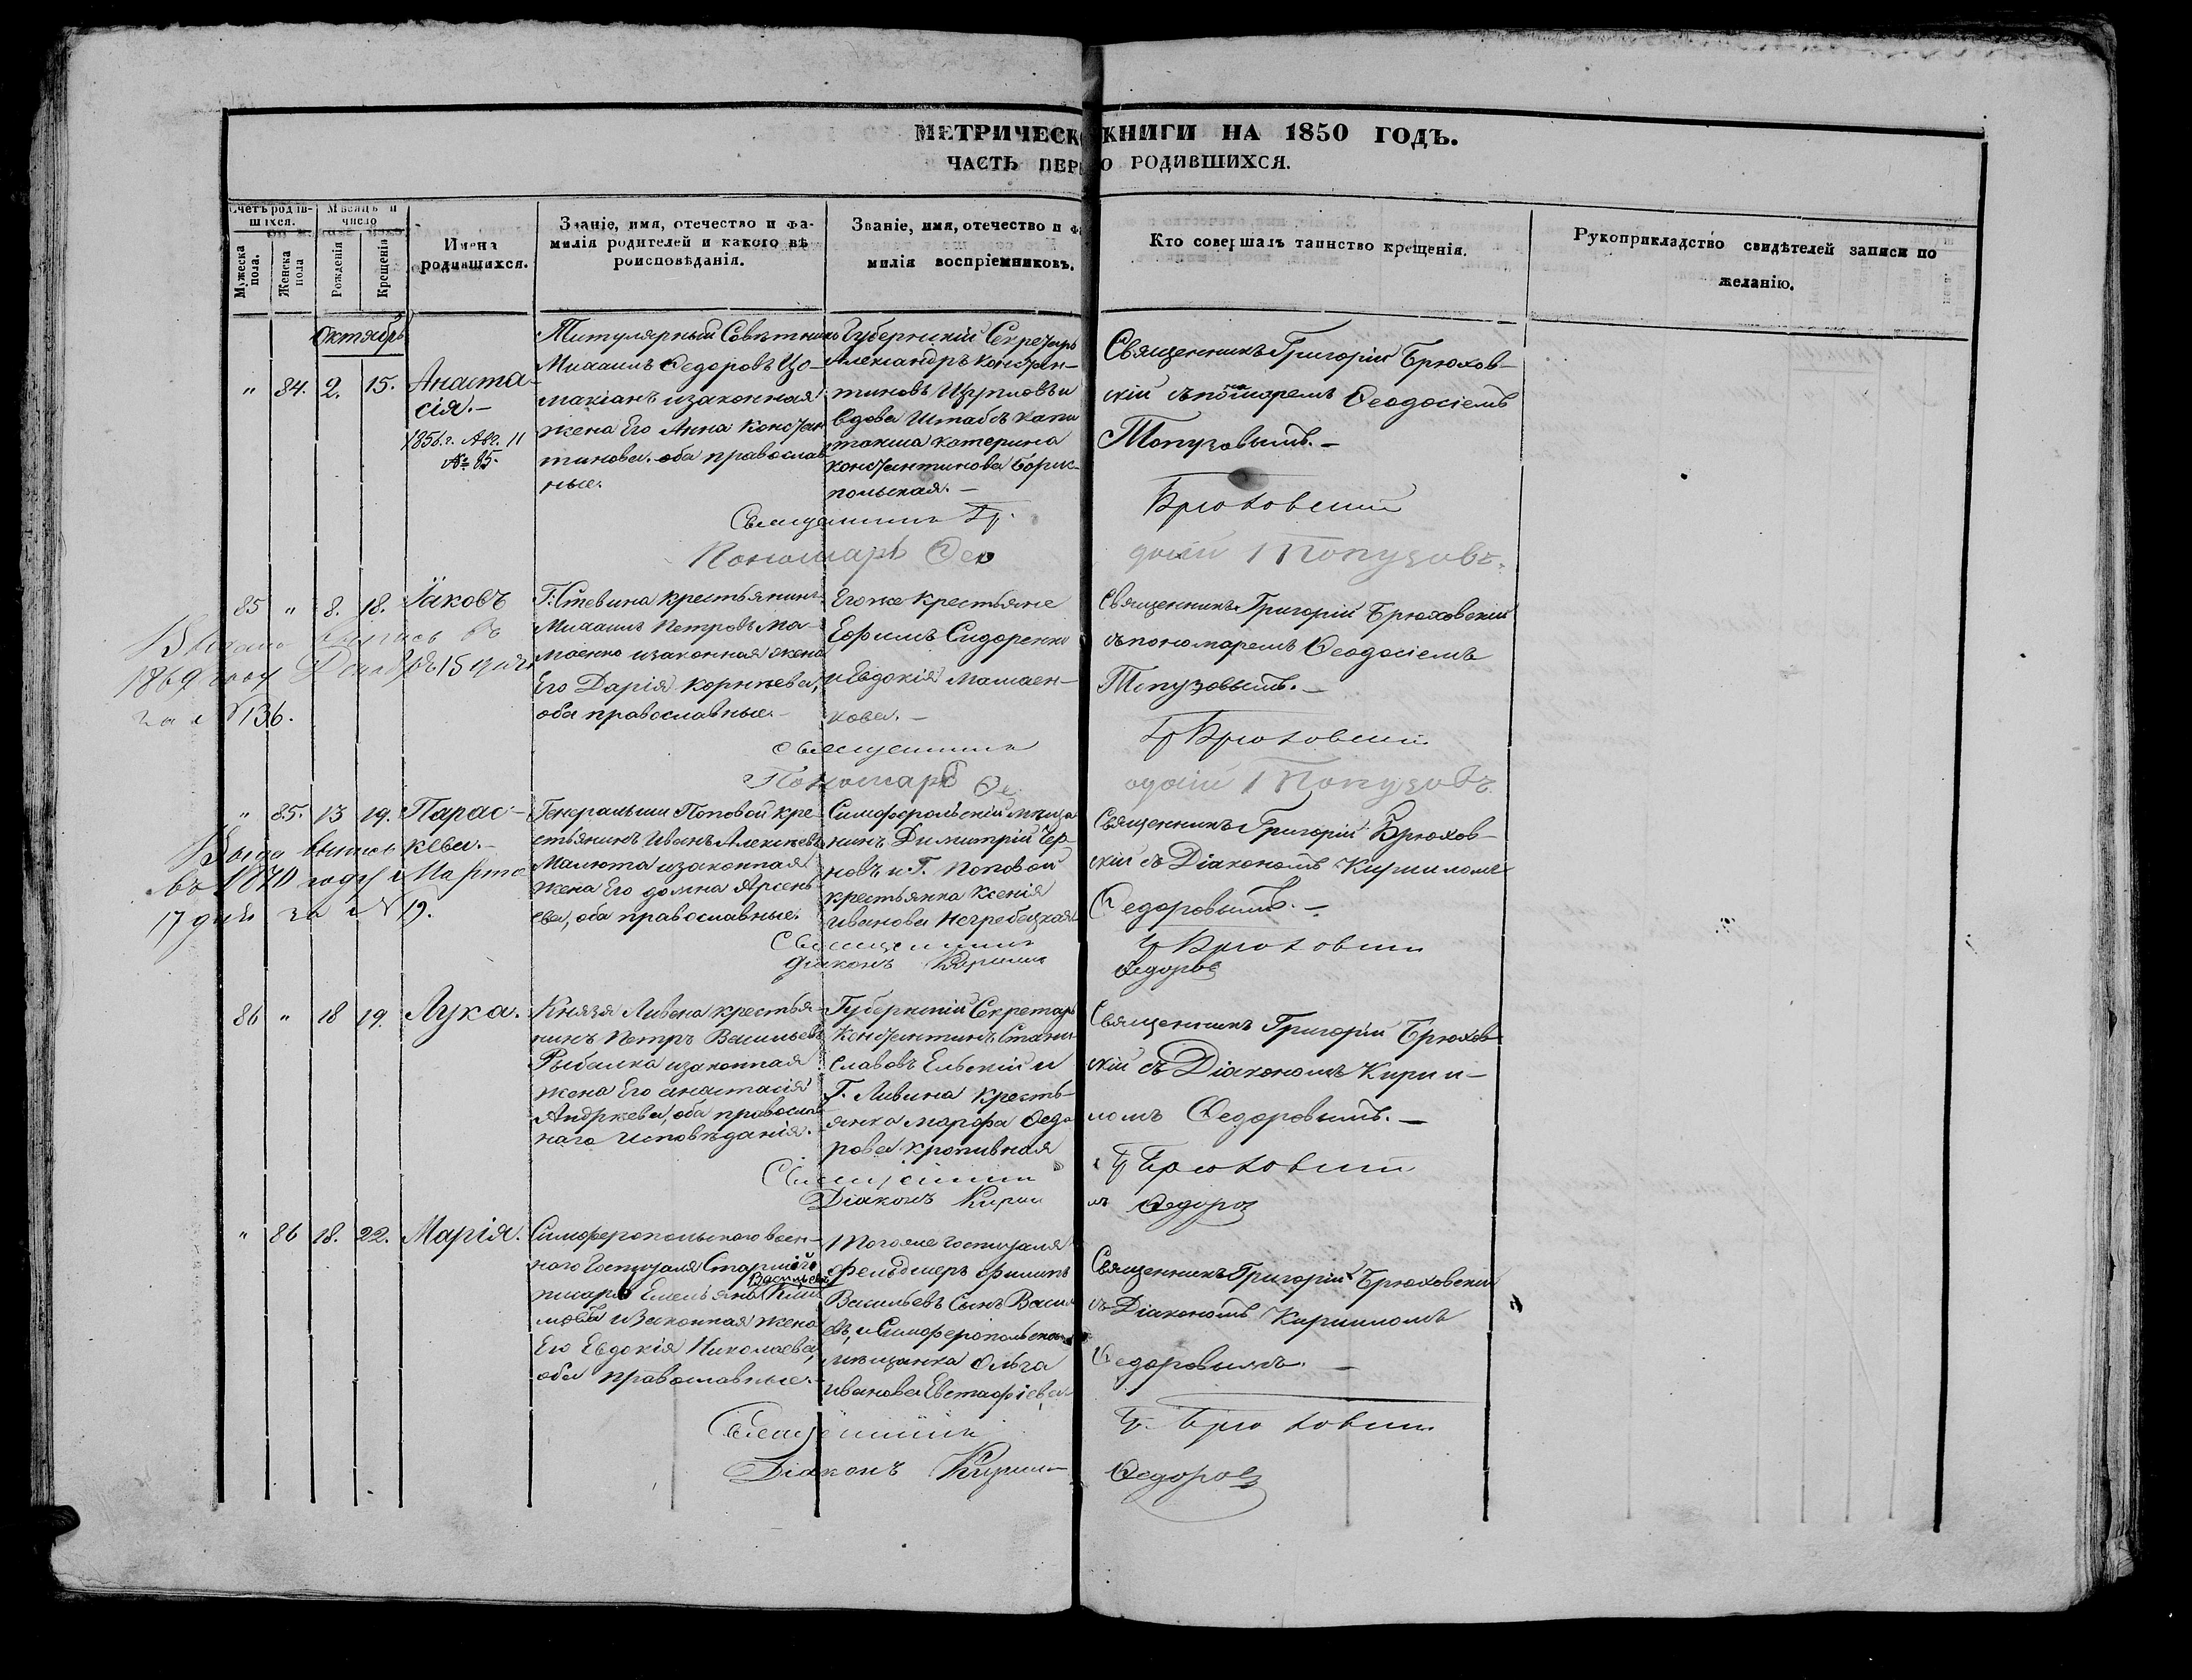 МЕТРИЧЕСКО КНИГИ НА 1850 ГОДЪ.
ЧАСТЬ ПЕР О РОДИВШИХСЯ.
Счетъ родив-
шихся.
Мужеска
пола.
Женска
пола
Мѣсяцъ и
число
Рожденія
Крещенія
Имена
родившихся.
Званіе, имя, отечество и фа-
милія родителей и какого вѣ
роисповѣданія.
Званіе, имя, отечество и фа
милія воспріемниковъ.
Кто совершалъ таинство крещенія.
Рукоприкладство свидѣтелей записи по
желанію.
Октябрь
" 84. 2. 15.
Анаста-
сія.-
1856 г. Авг. 11
№ 85.
Титулярный Совѣтникъ
Михаилъ Ѳедоровъ Цо-
макіанъ изаконная
жена Его Анна Констан
тинова. оба православ
ные.
Губернскій Секретарь
Александръ Констан-
тиновъ и
вдова Штабсъ капи
танша Катерина
Константинова Борис-
польская.-
Священникъ Григорій Брюхов-
скій съ пономаремъ Ѳеодосіемъ
Топузовымъ.-
Священникъ Гр. Брюховскій
Пономарь Ѳео досій Топузовъ.
85 " 8. 18.
Іаковъ
въ
1869 году Декабря 15 дня
за № 136.
Г. крестьянинъ
Михаилъ Петровъ Ма-
маенко изаконная жена
Его Дарія Корнѣева,
оба православные.-
Егоже Крестьяне
Ефимъ Сидоренко
и Евдокія Мамаен-
кова.-
Священникъ Григорій Брюховскій
съ пономаремъ Ѳеодосіемъ
Топузовымъ.-
Священникъ Гр Брюховскій
Пономарь Ѳе одосій Топузовъ
" 85. 13 19.
Парас-
кева.-
въ 1870 году Марта
17 дня за № 19.
Генеральши Поповой кре-
стьянинъ Иванъ Алексѣевъ
Малюта изаконная
жена Его домна Арсень
ева, оба православные.
Симферопольскій мѣща
нинъ Димитрій Чер-
новъ и Г. Поповой
крестьянка Ксенія
Иванова Негребецкая
Священникъ Григорій Брюхов-
скій съ Діакономъ Кирилломъ
Ѳедоровымъ.-
Священникъ Гр Брюховскій
Діаконъ Кириллъ Ѳедоровъ
86 " 18 19.
Лука.
Князя Ливена крестья-
нинъ Петръ Васильевъ
Рыбалка изаконная
жена Его анастасія
Андреева, оба православ
наго Исповѣданія.
Губернскій Секретарь
Константинъ Стани
славовъ Ельскій и
Г. Ливина кресть-
янка марфа Ѳедо
рова Кропивная
Священникъ Григорій Брюхов-
скій съ Діакономъ Кирил-
ломъ Ѳедоровымъ.-
Священникъ Гр Брюховскій
Діаконъ Кирил лъ Ѳедоровъ
" 86 18. 22.
Марія.
Симферопольскаго воен-
наго Госпиталя Старшій
Васильевъ
писарь Емельянъ
изаконная жена
Его Евдокія Николаева,
оба православные.-
Тогоже Госпиталя
фельдшеръ Филипъ
Васильевъ Сынъ Василь
евъ, и Симферопольская
мѣщанка Ольга
Иванова Евстафіева
Священникъ Григорій Брюховскій
съ Діакономъ Кирилломъ
Ѳедоровымъ.-
Священникъ Гр. Брюховскій
Діаконъ Кириллъ Ѳедоровъ